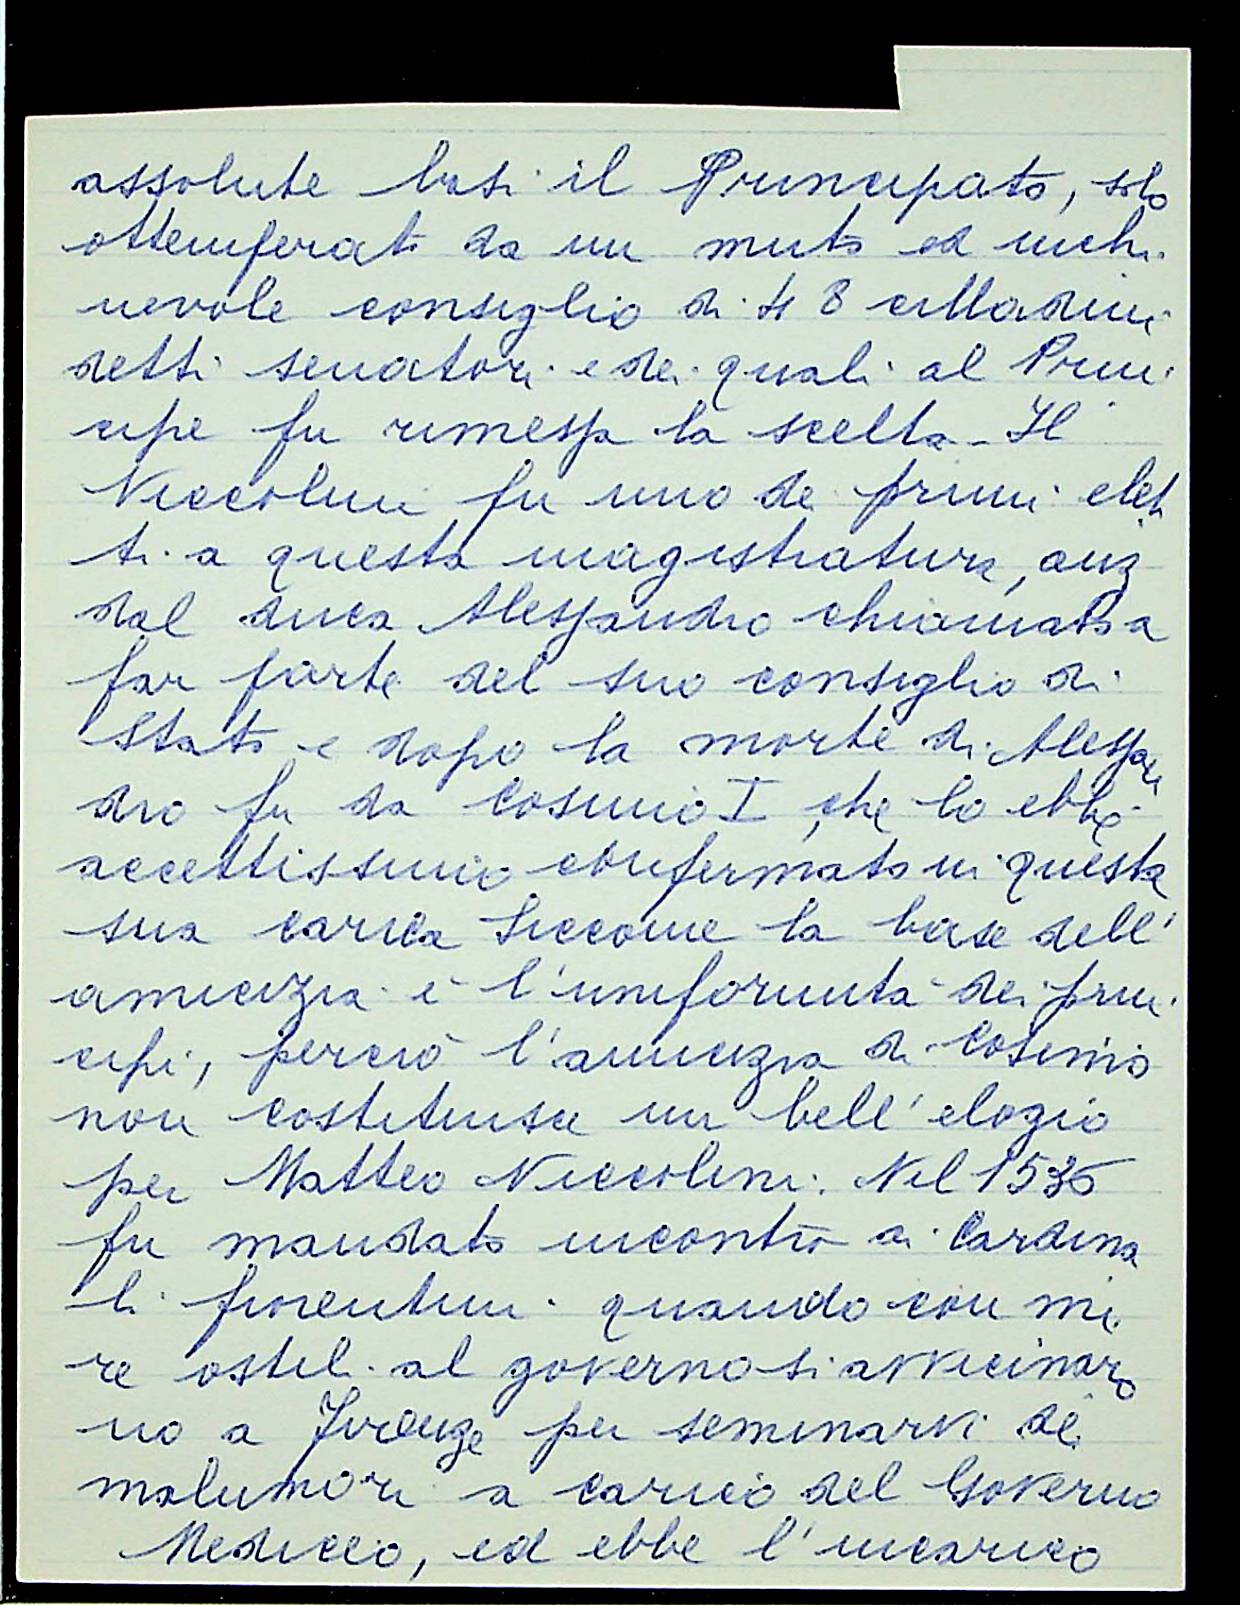 assolute basi il Principato, solo
ottemperato da un muto ed inchi
nevole consiglio di 48 cittadini
detti senatori e dei quali al Prin
cipe fu rimessa la scelta - Il
Niccolini fu uno dei primi elet
ti a questa magistratura, anz
dal duca Alessandro chiamato a
far parte del suo consiglio di
Stato e dopo la morte di Alessan
dro fu da Cosimo I, che lo ebbe
accettissimo confermato in questa
sua carica Siccome la base dell'
amicizia è l'uniformità dei prin
cipi, perciò l'amicizia di Cosimo
non costituisce un bell'elogio
per Matteo Niccolini. Nel 1536
fu mandato incontro ai Cardina
li fiorentini quando con mi
re ostili al governo si avvicinaro
no a Firenze per seminarvi dei
malumori a carico del Governo
Mediceo, ed ebbe l'incarico